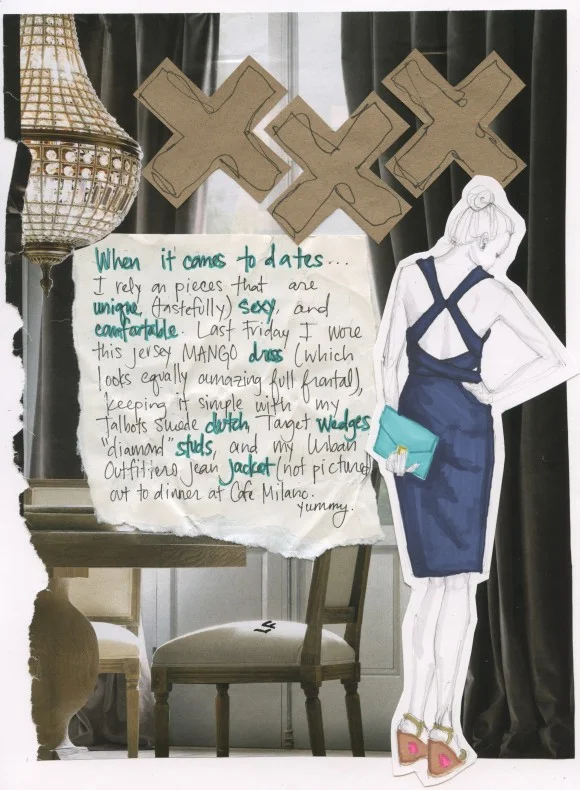 XXX
When it comes to dates...
I rely on pieces that are
unique, (tastefully) sexy, and
comfortable. Last Friday I wore
this jersey MANGO dress (which
looks equally amazing full frontal),
keeping it simple with my
Talbots suede clutch, Target wedges
"diamond" studs, and my Urban
Outfitters jean jacket (not pictured)
out to dinner at Cafe Milano.
yummy.